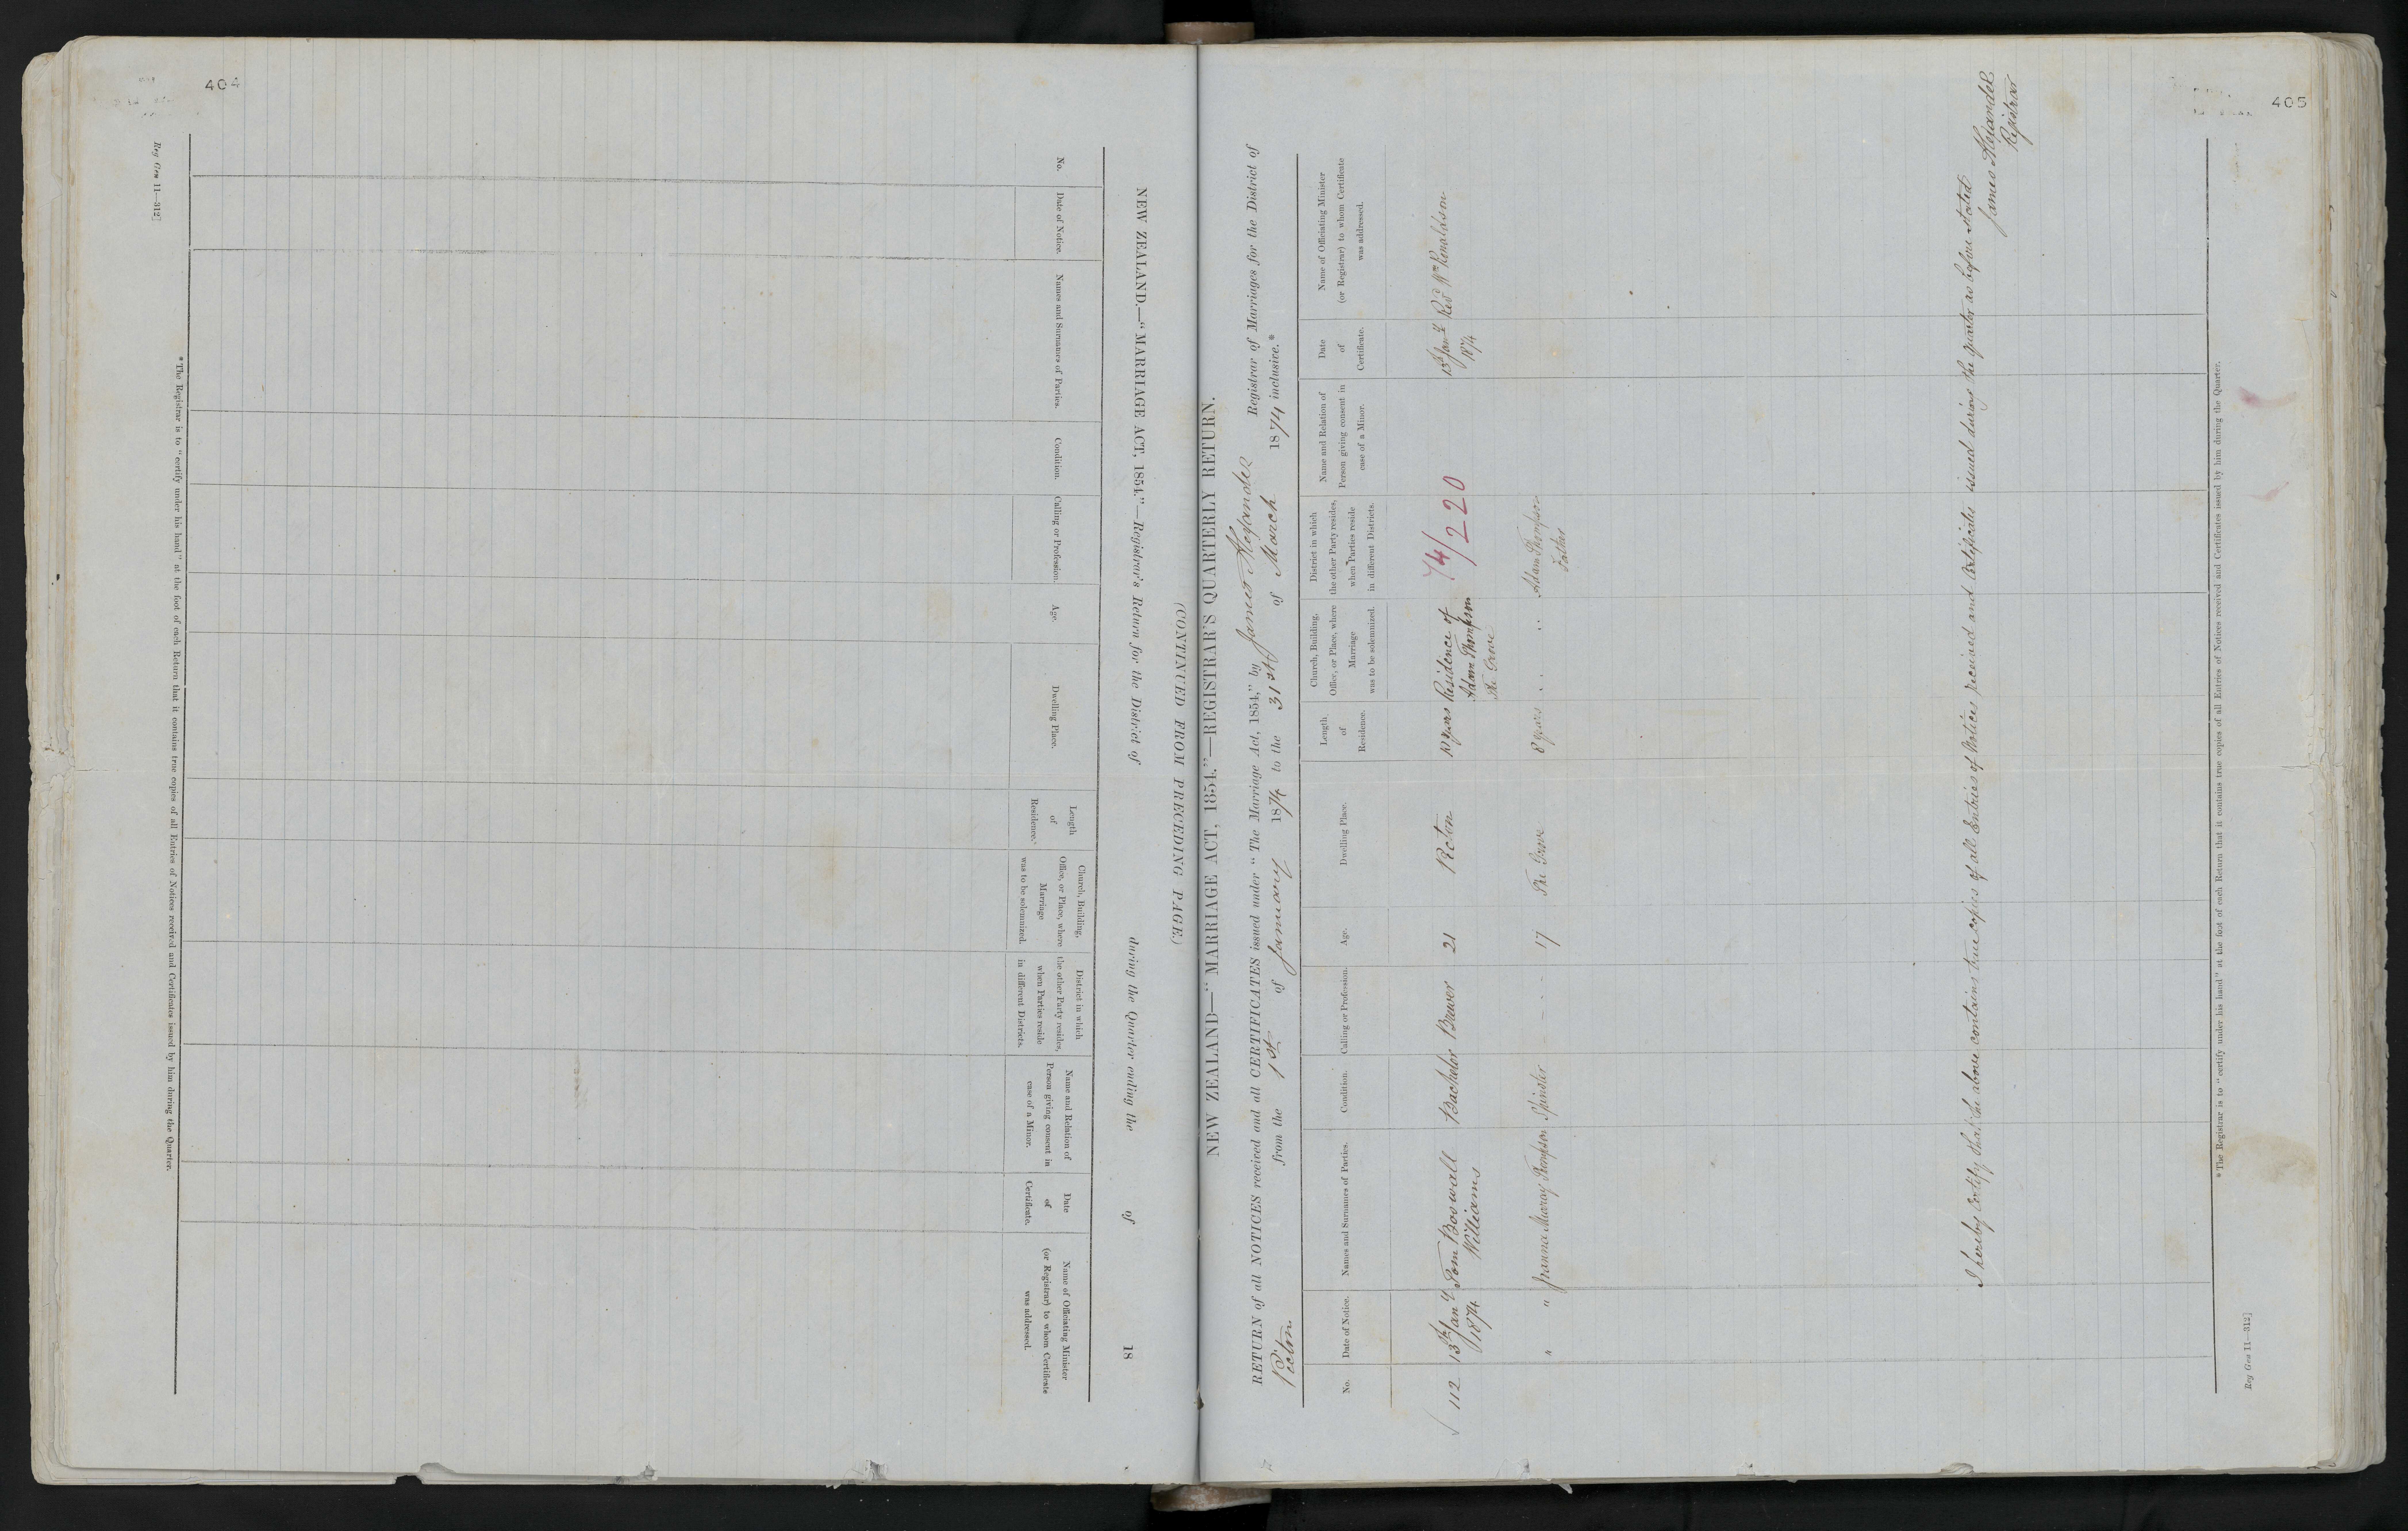 404
Reg Gen 11—312]
NEW ZEALAND.—"MARRIAGE ACT, 1854."—Registrar's Return for the District of during the Quarter ending the of 18
(CONTINUED FROM PRECEDING PAGE)
No.
Date of Notice.
Names and Surnames of Parties.
Condition.
Calling or Profession.
Age.
Dwelling Place.
Length
of
Residence.
Church, Building,
Office, or Place, where
Marriage
was to be solemnized.
District in which
the other Party resides,
when Parties reside
in different Districts.
Name and Relation of
Person giving consent in
case of a Minor.
Date
of
Certificate.
Name of Officiating Minister
(or Registrar) to whom Certificate
was addressed.
*The Registrar is to "certify under his hand" at the foot of each Return that it contains true copies of all Entries of Notices received and Certificates issued by him during the Quarter.
405
NEW ZEALAND—"MARRIAGE ACT, 1854."—REGISTRAR'S QUARTERLY RETURN.
RETURN of all NOTICES received and all CERTIFICATES issued under "The Marriage Act, 1854," by James Alexander Registrar of Marriages for the District of
Picton from the 1st of January 1874 to the 31st of March 1874 inclusive.*
No.
Date of Notice.
Names and Surnames of Parties.
Condition.
Calling or Profession.
Age.
Dwelling Place.
Length
of
Residence.
Church, Building,
Office, or Place, where
Marriage
was to be solemnized.
District in which
the other Party resides,
when Parties reside
in different Districts.
Name and Relation of
Person giving consent in
case of a Minor.
Date
of
Certificate.
Name of Officiating Minister
(or Registrar) to whom Certificate
was addressed.
74/220
112 13th Jany Tom Boswall Bachelor Brewer 21 Picton years Residence of 13th Jany Revd Wm Ronaldson
1874 Williams Adam Thompson 1874
The Grove
" " Murray Thompson Spinster - - - 17 The Grove 8 years Adam Thompson
Father
I hereby certify that the above contains true copies of all Entries of Notices received and Certificates issued during the quarter as before stated
James Alexander
Registrar
*The Registrar is to "certify under his hand" at the foot of each Return that it contains true copies of all Entries of Notices received and Certificates issued by him during the Quarter.
Reg Gen 11—312]